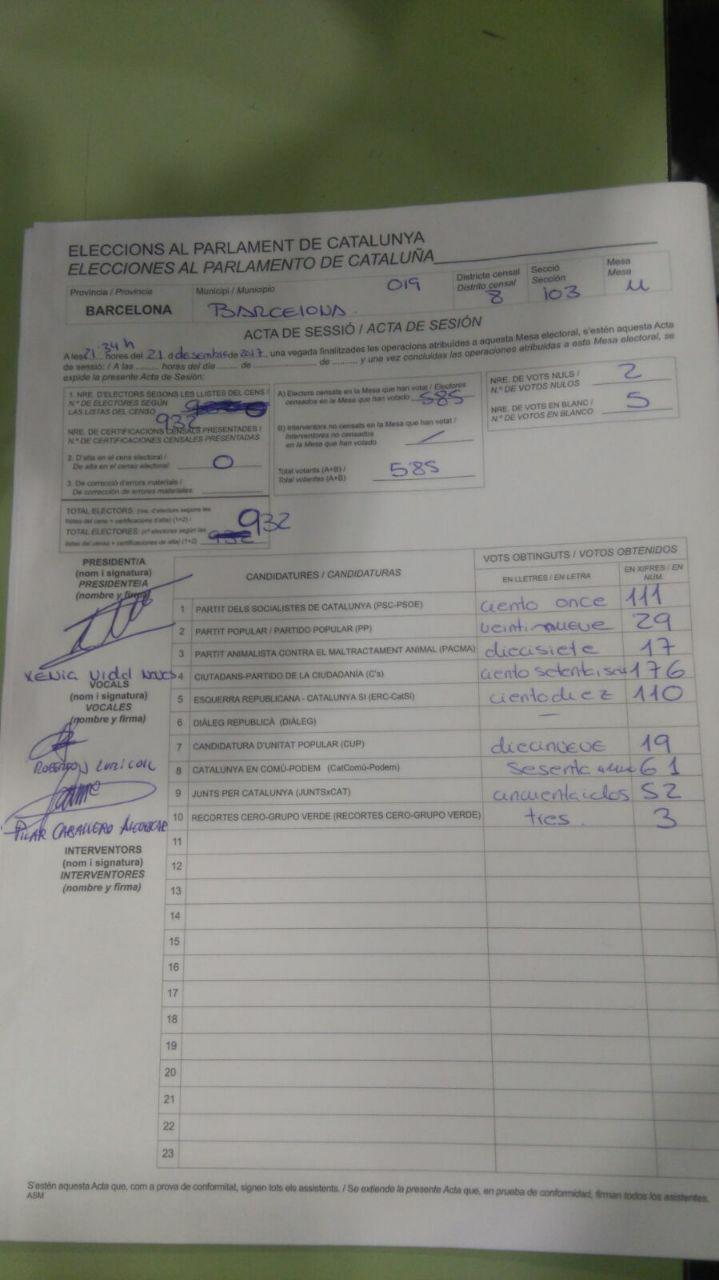 ELECCIONS AL PARLAMENT DE CATALUNYA
ELECCIONES AL PARLAMENTO DE CATALUÑA
Província / Provincia
BARCELONA
Municipi / Municipio
BARCELONA
019
Districte censal
Distrito censal
8
Secció
Sección
103
Mesa
Mesa
U
ACTA DE SESSIÓ / ACTA DE SESIÓN
A les 21.34 h hores del 21 d desembre de 2017, una vegada finalitzades les operacions atribuïdes a aquesta Mesa electoral, s'estén aquesta Acta
de sessió: / A las ........ horas del día ........ de .................... de .........., y una vez concluidas las operaciones atribuidas a esta Mesa electoral, se
expide la presente Acta de Sesión:
1. NRE. D'ELECTORS SEGONS LES LLISTES DEL CENS /
N.º DE ELECTORES SEGÚN
LAS LISTAS DEL CENSO
932
NRE. DE CERTIFICACIONS CENSALS PRESENTADES /
N.º DE CERTIFICACIONES CENSALES PRESENTADAS
2. D'alta en el cens electoral /
De alta en el censo electoral:
0
3. De correcció d'errors materials /
De corrección de errores materiales:
TOTAL ELECTORS: (nre. d'electors segons les
llistes del cens + certificacions d'alta) (1+2) /
TOTAL ELECTORES: (nº electores según las
listas del censo + certificaciones de alta) (1+2)
932
A) Electors censats en la Mesa que han votat / Electores
censados en la Mesa que han votado
585
B) Interventors no censats en la Mesa que han votat /
Interventores no censados
en la Mesa que han votado
Total votants (A+B) /
Total votantes (A+B)
585
NRE. DE VOTS NULS /
N.º DE VOTOS NULOS
2
NRE. DE VOTS EN BLANC /
N.º DE VOTOS EN BLANCO
5
PRESIDENT/A
(nom i signatura)
PRESIDENTE/A
(nombre y firma)
VOCALS
(nom i signatura)
VOCALES
(nombre y firma)
PILAR CABALLERO
INTERVENTORS
(nom i signatura)
INTERVENTORES
(nombre y firma)
CANDIDATURES / CANDIDATURAS
VOTS OBTINGUTS / VOTOS OBTENIDOS
EN LLETRES / EN LETRA
EN XIFRES / EN NÚM.
1 PARTIT DELS SOCIALISTES DE CATALUNYA (PSC-PSOE) ciento once 111
2 PARTIT POPULAR / PARTIDO POPULAR (PP) veintinueve 29
3 PARTIT ANIMALISTA CONTRA EL MALTRACTAMENT ANIMAL (PACMA) diecisiete 17
4 CIUTADANS-PARTIDO DE LA CIUDADANÍA (C's) ciento setentaiseis 176
5 ESQUERRA REPUBLICANA - CATALUNYA SÍ (ERC-CatSí) ciento diez 110
6 DIÀLEG REPUBLICÀ (DIÀLEG) —
7 CANDIDATURA D'UNITAT POPULAR (CUP) diecinueve 19
8 CATALUNYA EN COMÚ-PODEM (CatComú-Podem) sesenta 61
9 JUNTS PER CATALUNYA (JUNTSxCAT) cincuentaidos 52
10 RECORTES CERO-GRUPO VERDE (RECORTES CERO-GRUPO VERDE) tres 3
11
12
13
14
15
16
17
18
19
20
21
22
23
S'estén aquesta Acta que, com a prova de conformitat, signen tots els assistents. / Se extiende la presente Acta que, en prueba de conformidad, firman todos los asistentes.
ASM